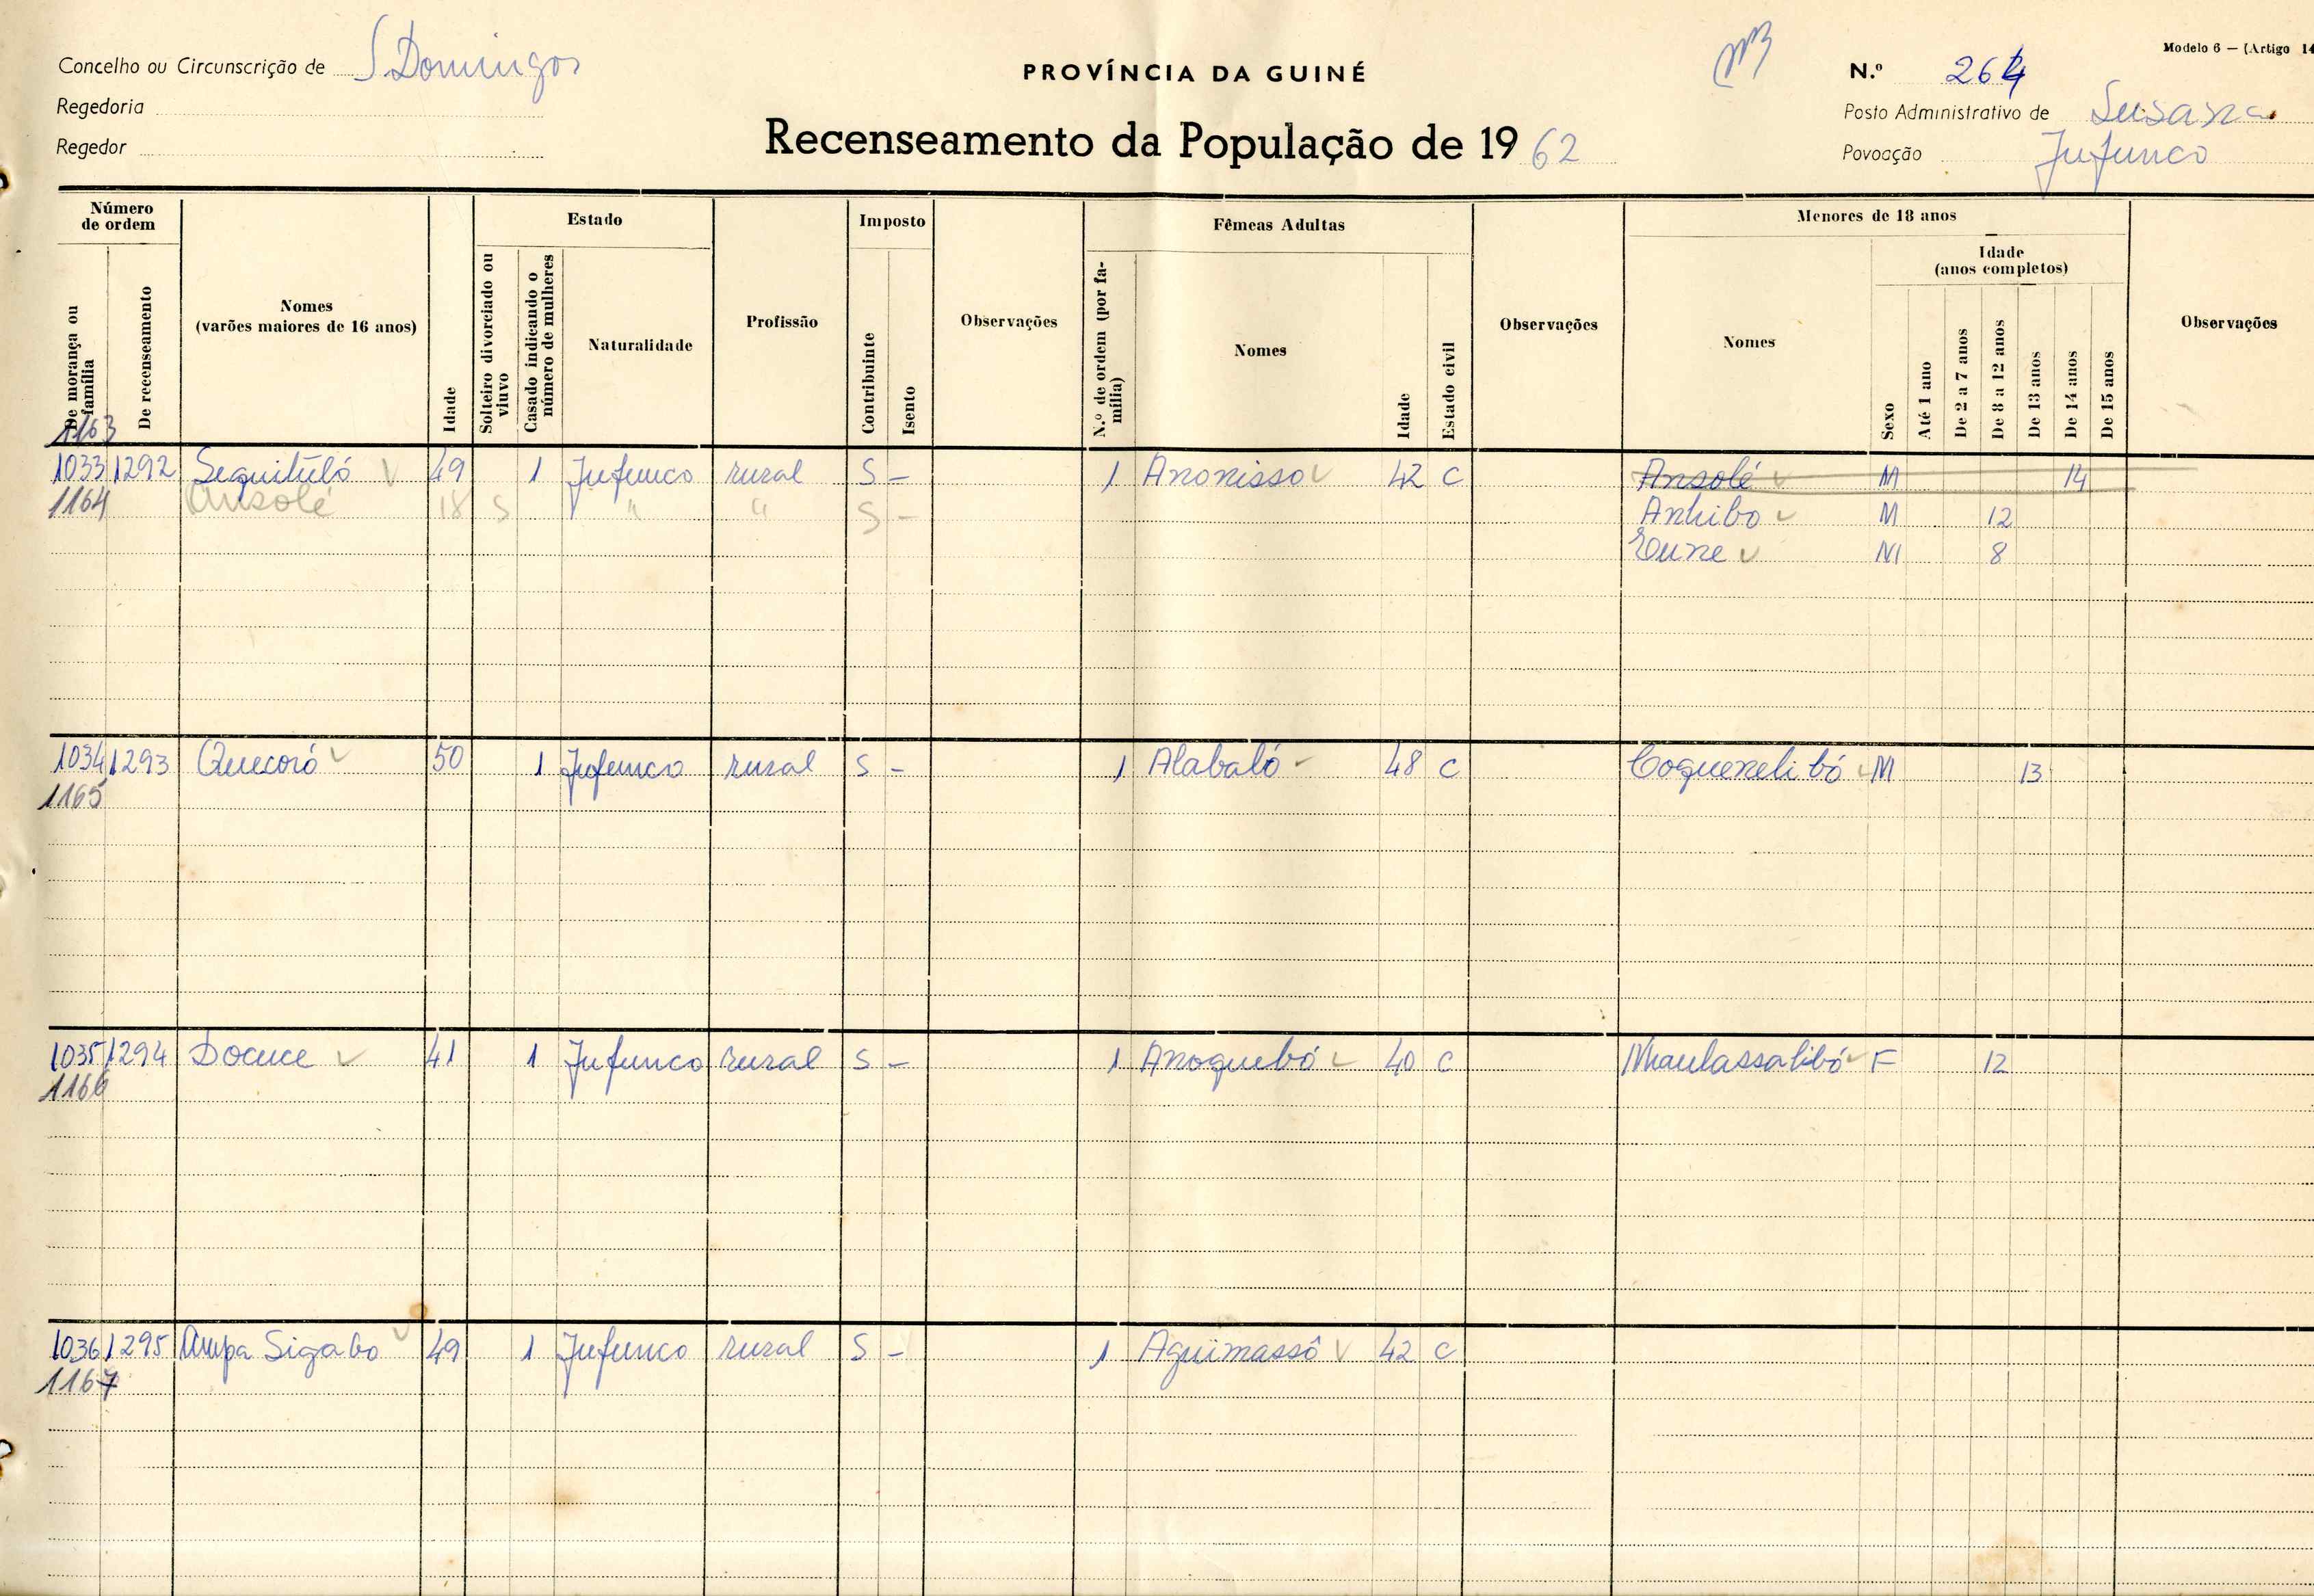 Concelho ou Circunscrição de S. Domingos
Regedoria
Regedor
PROVÍNCIA DA GUINÉ
Recenseamento da População de 1962
Modelo 6 — (Artigo 14
N.º 264
Posto Administrativo de Susana
Povoação Jufunco
Número de ordem
De morança ou família
De recenseamento
Nomes (varões maiores de 16 anos)
Idade
Estado
Solteiro divorciado ou viuvo
Casado indicando o número de mulheres
Naturalidade
Profissão
Imposto
Contribuinte
Isento
Observações
Fêmeas Adultas
N.º de ordem (por família)
Nomes
Idade
Estado civil
Observações
Menores de 18 anos
Nomes
Sexo
Idade (anos completos)
Até 1 ano
De 2 a 7 anos
De 8 a 12 anos
De 13 anos
De 14 anos
De 15 anos
Observações
1163
1033 1292 Sequituló 49 1 Jufunco rural S – 1 Anonisso 42 C Ansolé M 14
1164 Ansolé 18 S " " S – Anhibo M 12
Eune M 8
1034 1293 Quecoró 50 1 Jufunco rural S – 1 Alabaló 48 C Coquenelibó M 13
1165
1035 1294 Docuce 41 1 Jufunco rural S – 1 Anoquebó 40 C Nhaulassalibó F 12
1166
1036 1295 Ampa Sigabo 49 1 Jufunco rural S – 1 Aquimassô 42 C
1167